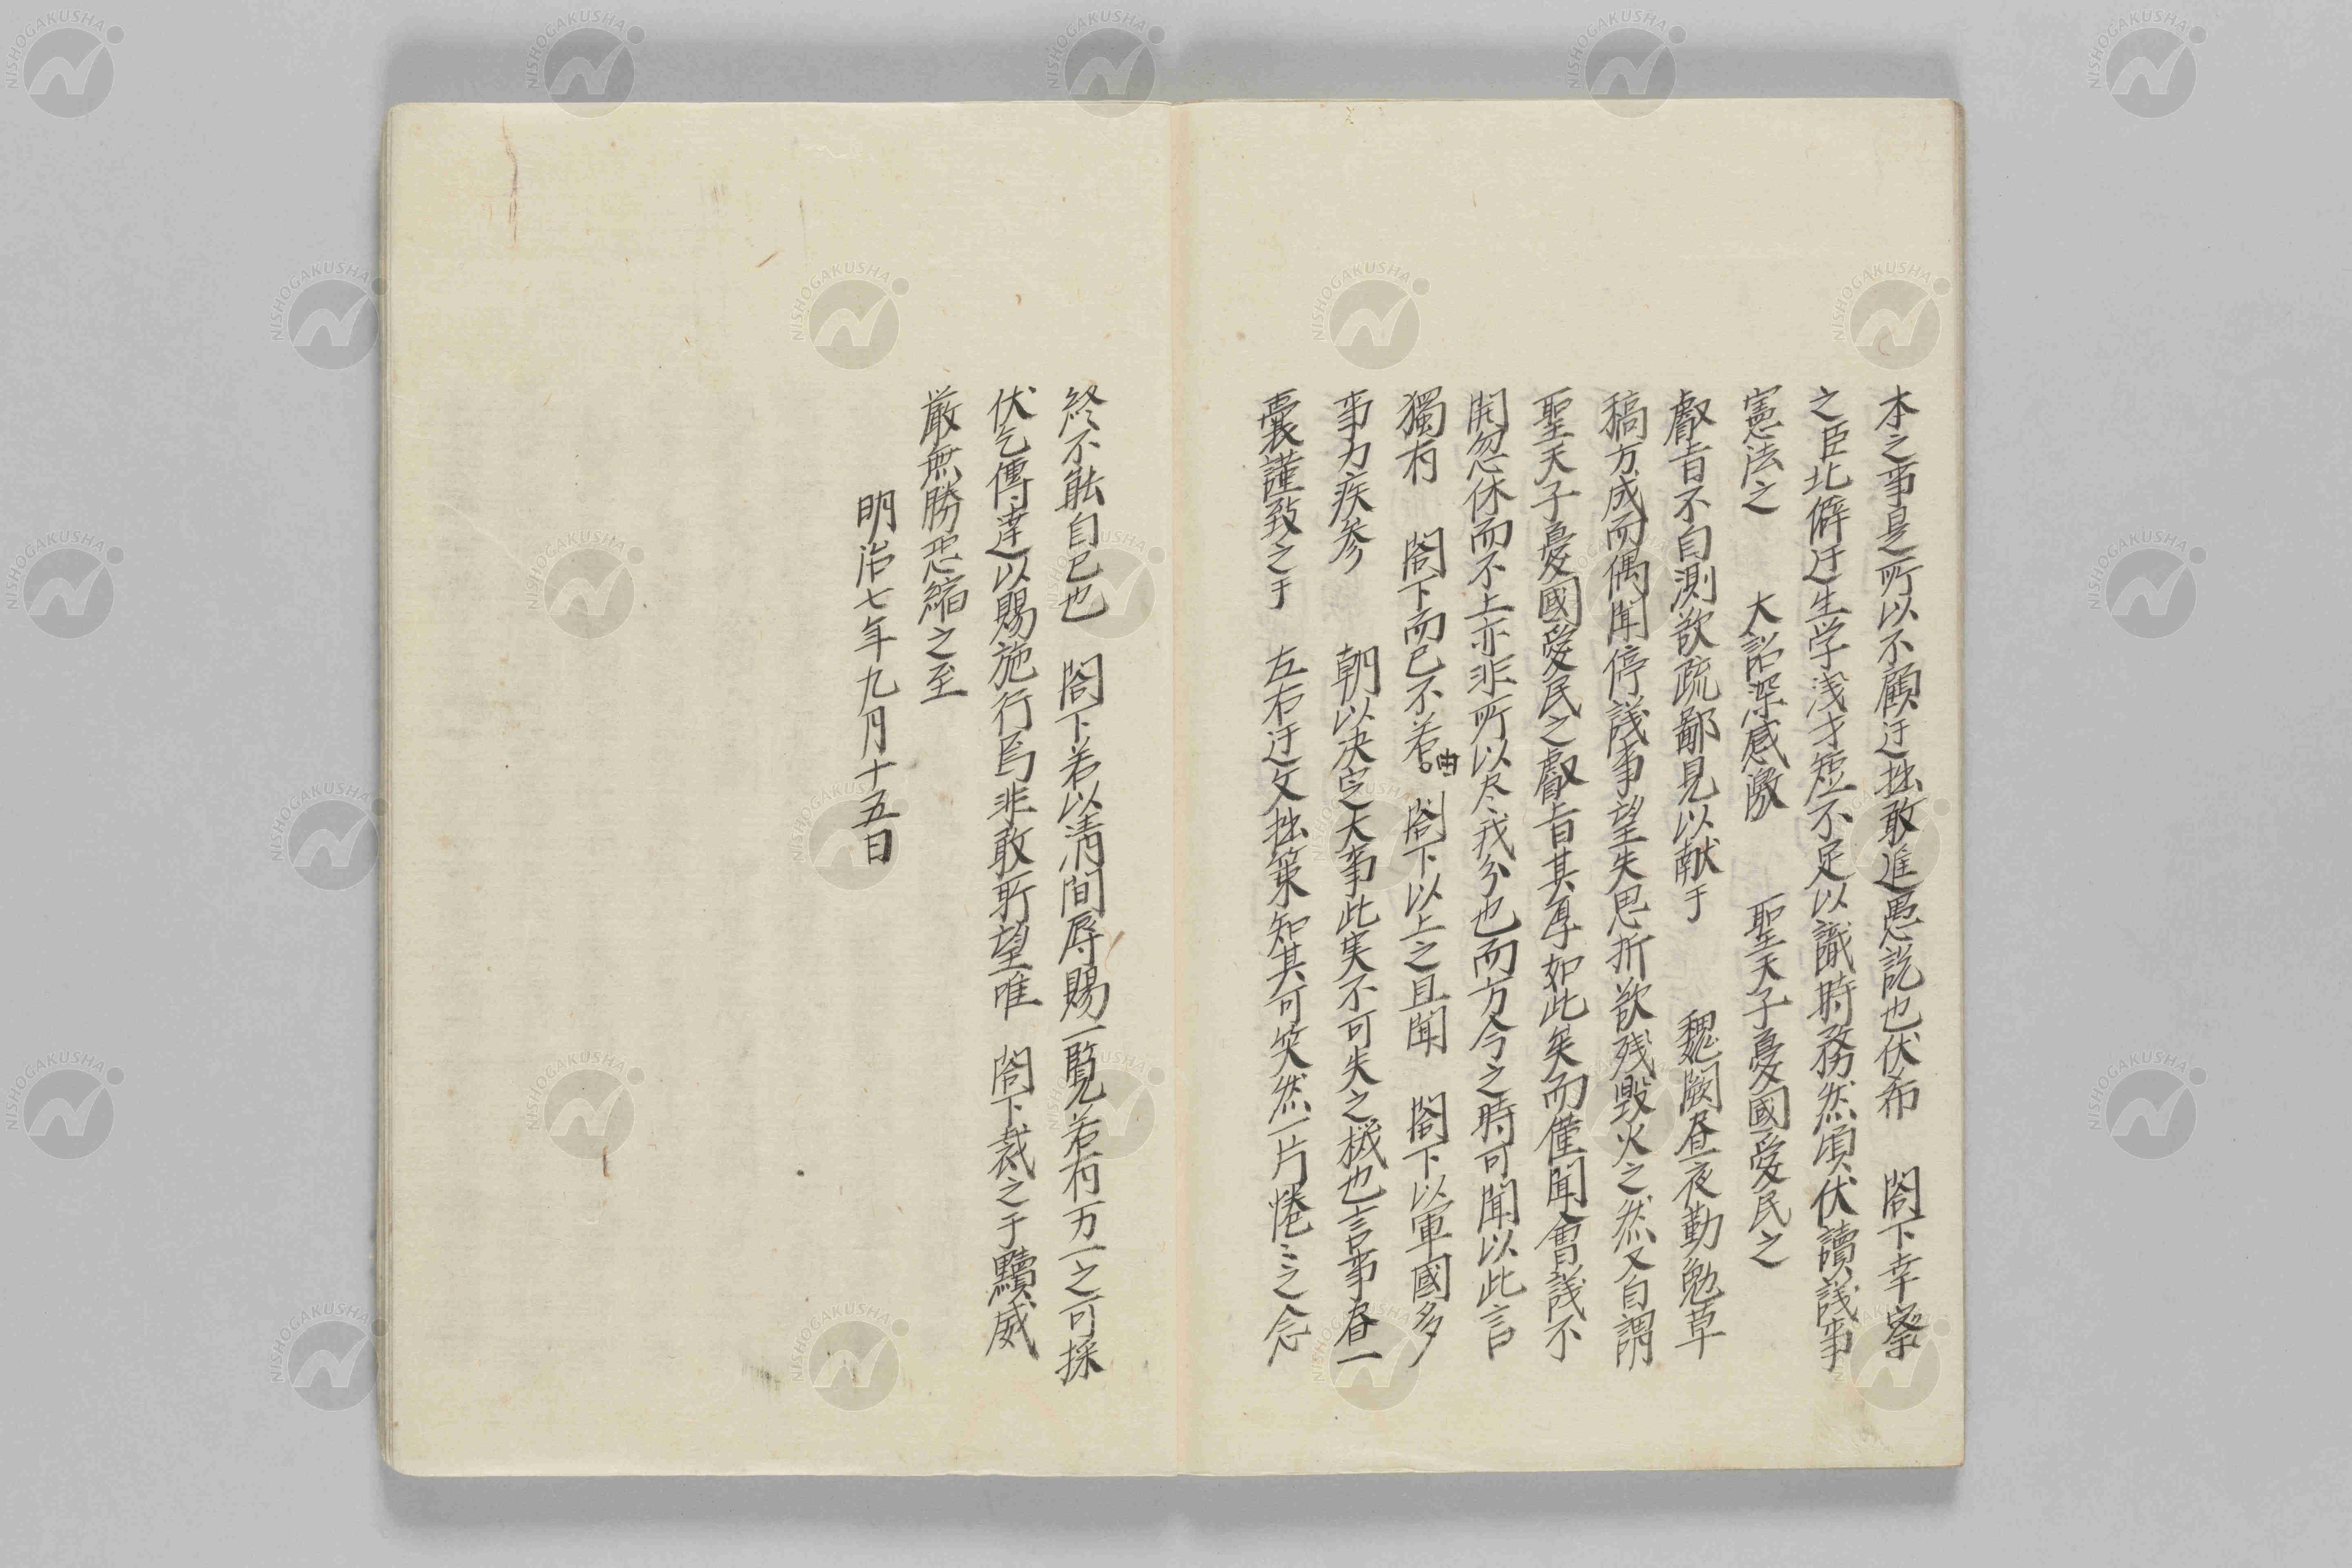 本之事是所以不顧迂拙敢進愚説也伏希　閣下幸察
之臣北僻迂生学浅才短不足以識時務然頃伏讀議事
憲法之　大詔深感激　聖天子憂國愛民之
叡旨不自測欲疏鄙見以献于　魏闕昼夜勤勉草
稿方成而偶聞停議事望失思折欲残毀火之然又自謂
聖天子憂國愛民之叡旨其厚如此矣而僅聞會議不
開忽休而不上亦非所以尽我分也而方今之時可聞以此言
獨有　閣下而已不若由　閣下以上之且聞　閣下以軍國多
事力疾参　朝以决定大事此実不可失之機也言事春一
囊謹致之于　左右迂文拙策知其可笑然一片惓〻之念
終不能自已也　閣下若以清間辱賜一覧若有一万一之可採
伏乞傳達以賜施行焉非敢所望唯　閣下裁之于黷威
厳無勝恐縮之至
明治七年九月十五日
NISHOGAKUSHA